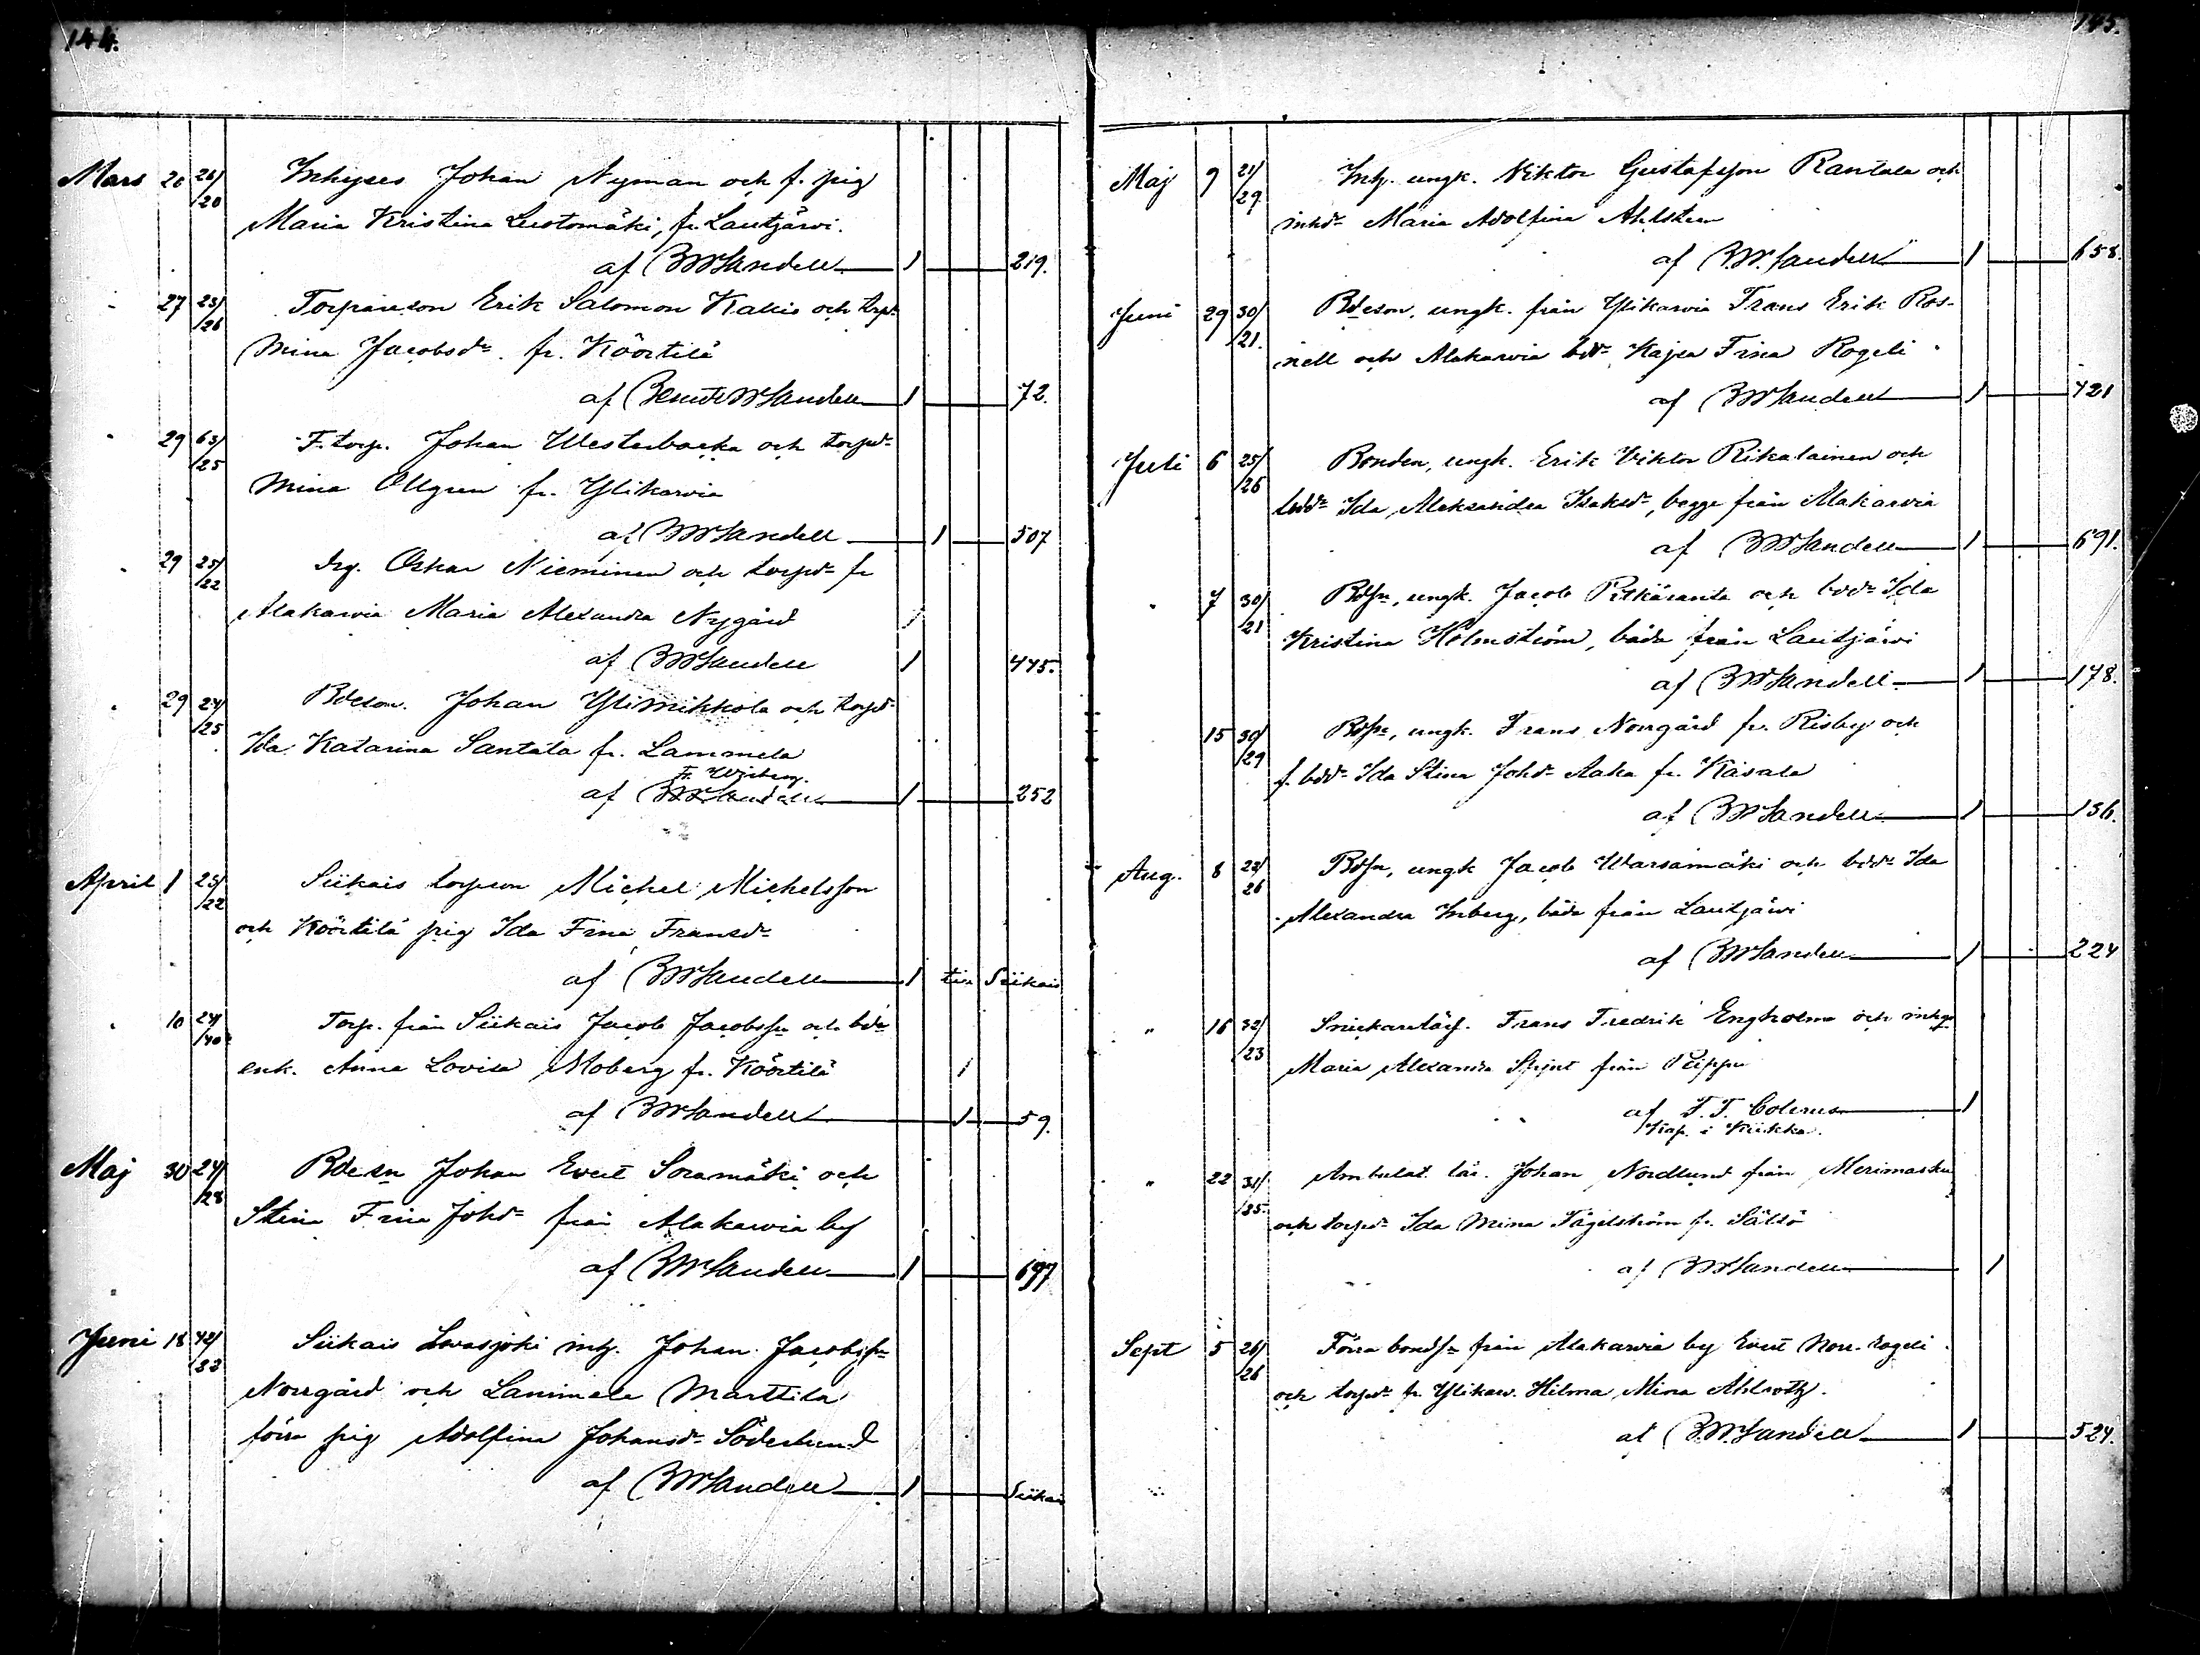 144.
Mars 20 26/20 Inhyses Johan Nyman och f. pig
Maria Kristina Lustomäki, fr. Lautjärvi.
af BWSandell 1 219.
27 23/26 Torparson Erik Salomon Kallio och torpd
Mina Jacobsdr. fr. Köörtilä
af Bernt WSandell 1 72.
29 63/25 F. torp. Johan Westerbacka och torpdr
Mina Ollgren fr. Ylikarvia
af BWSandell 1 507
29 25/22 drg. Oskar Nieminen och torpdr fr
Alakarvia Maria Alexandra Nygård
af BWSandell 1 475.
29 24/25 Bdeson. Johan Ylimikkola och torpdr
Ida Katarina Santala fr. Lammela
Fr. Wiberg.
af BWSandell 1 252
April 1 25/22 Siikais torpson Michel Michelsson
och Köörtilä pig Ida Fina Fransdr
af BWSandell 1 till Siikais
10 24/40 Torp. från Siikais Jacob Jacobsson och bde
enk. Anna Lovisa Moberg fr. Köörtilä 1
af BWSandell 1 59.
Maj 30 24/28 Bdesn Johan Evert Soramäki och
Stina Fina Johdr från Alakarvia by
af BWSandell 1 697
Juni 18 42/33 Siikais Leväsjoki inh. Johan Jacobsson
Norrgård och Lammela Marttila
förra pig Adolfina Johansdr Söderlund
af BWSandell 1 Siikais
145.
Maj 9 21/29 Inh. ungk. Viktor Gustafsson Rantala och
inhdr Maria Adolfina Ahlsten
af B.W.Sandell 1 658.
Juni 29 30/21. Bdeson, ungk. från Ylikarvia Frans Erik Ros-
nell och Alakarvia bdr Kajsa Fina Rogeli
af BWSandell 1 721
Juli 6 25/26 Bonden, ungk. Erik Viktor Rikalainen och
bdr Ida Aleksandra Isaksdr, begge från Alakarvia
af BWSandell 1 691.
7 30/21 Bdsn, ungk. Jacob Pitkäranta och bdr Ida
Kristina Holmström, båda från Lautjärvi
af BWSandell 1 178.
15 30/29 Bdsn, ungk. Frans Norrgård fr. Risby och
f. bdr Ida Stina Johdr Aaka fr. Kasala
af BWSandell 1 136.
Aug. 8 22/26 Bdsn, ungk Jacob Warsamäki och bdr Ida
Alexandra Inberg, båda från Lautjärvi
af BWSandell 1 224
" 16 32/23 Snickarelärl. Frans Fredrik Engholm och inhys
Maria Alexandra från
af F. F. Colerus 1
Kap. i Kiikka.
" 22 31/35. Ambulat. lär. Johan Nordlund från Merimasku
och torpdr Ida Mina Fågelström fr. Sälsö
af BWSandell 1
Sept 5 26/26 Förra bondsn från Alakarvia by Evert Norr-Rogeli
och torpdr fr. Ylikarv. Hilma Mina Ahlroth.
af B.W.Sandell 1 524.